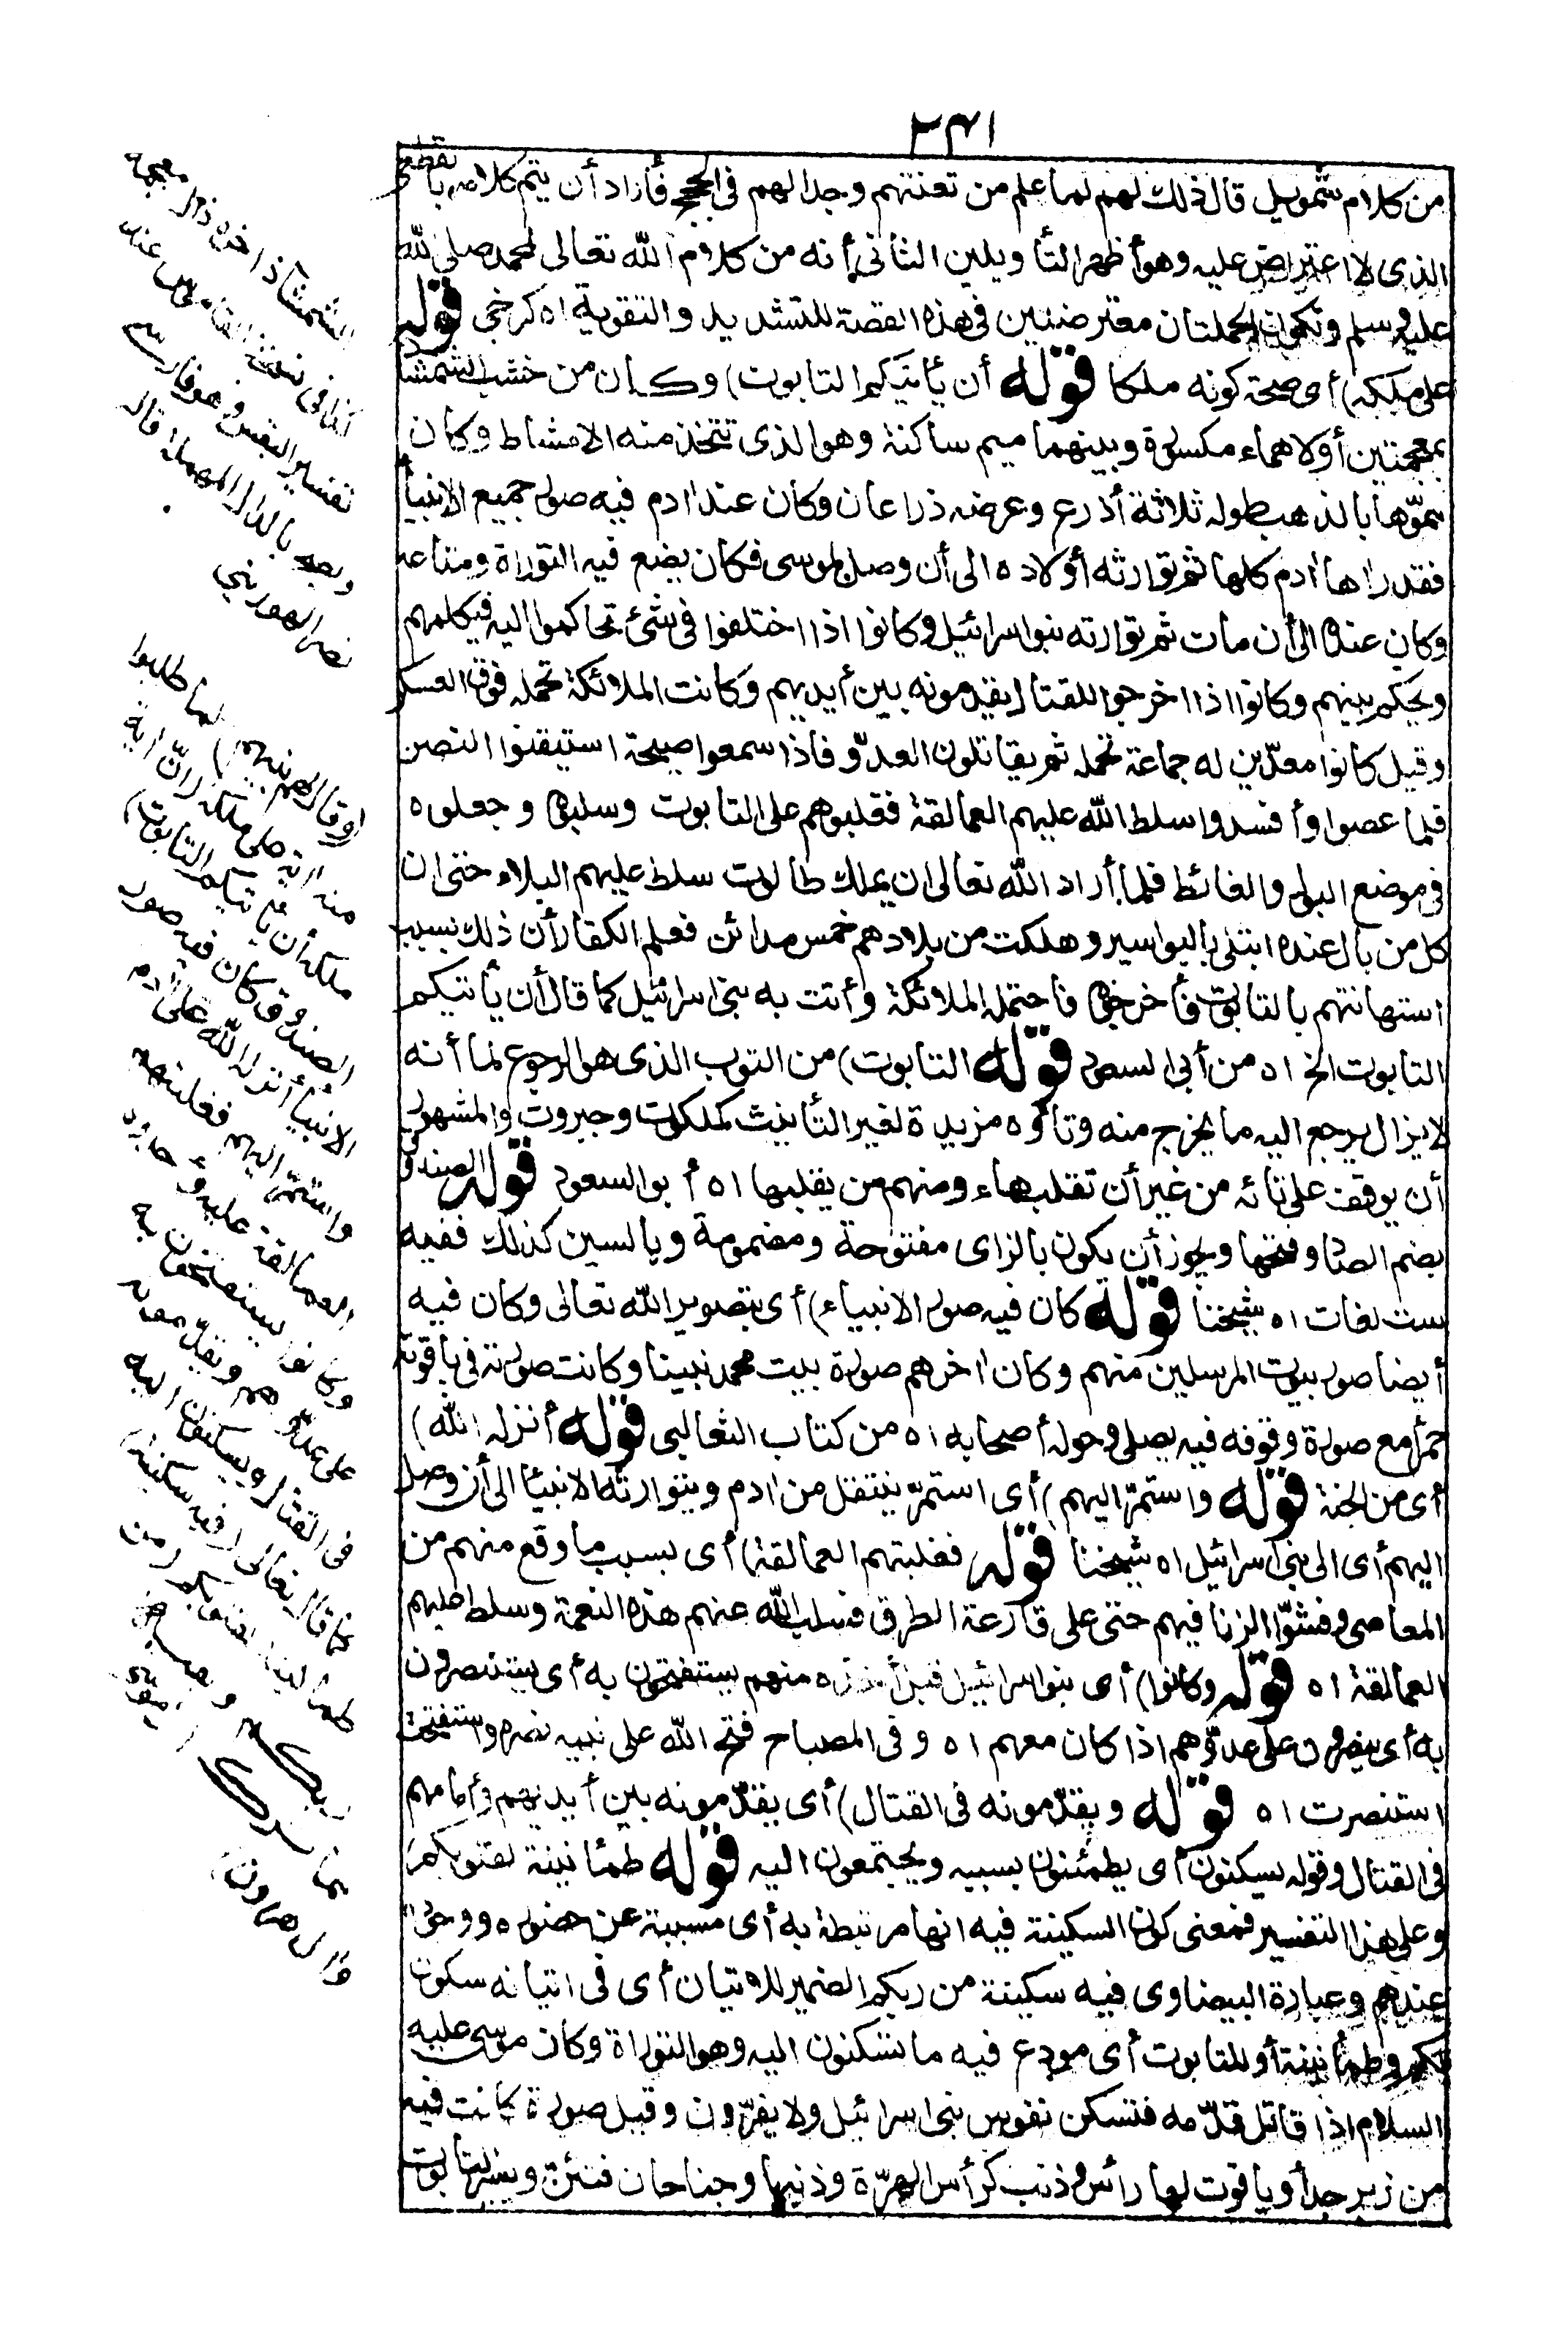 ٢٤١
من كلام شمويل قال ذلك لهم لما علم من تعنتهم وجدالهم فى الحجج فأراد أن يتم كلامه بالقطعى
الذى لا اعتراض عليه وهو أظهر التأويلين الثانى أنه من كلام الله تعالى لمحمد صلى الله
عليه وسلم وتكون الجملتان معترضتين فى هذه القصة للتشديد والتقوية اه كرخى قوله
على ملكه) أى صحة كونه ملكا قوله أن يأتيكم التابوت) وكان من خشب الشمشاد
بمعجمتين أولاهما مكسورة وبينهما ميم ساكنة وهو الذى تتخذ منه الامشاط وكان
مموّها بالذهب طوله ثلاثة أذرع وعرضه ذراعان وكان عند ادم فيه صور جميع الانبيأ
فقد راها ادم كلها ثم توارثه أولاده الى أن وصل لموسى فكان يضع فيه التوراة ومتاعه
وكان عنده الى أن مات ثم توارثه بنو اسرائيل وكانوا اذا اختلفوا فى شئ تحاكموا اليه فيكلمهم
ويحكم بينهم وكانوا اذا خرجوا للقتال يقدمونه بين أيديهم وكانت الملائكة تحمله فوق العسكر
وقيل كانوا معدّين له جماعة تحمله ثم يقاتلون العدوّ فاذا سمعوا صيحة استيقنوا النصر
فلما عصوا وأفسدوا سلط الله عليهم العمالقة فغلبوهم على التابوت وسلبوه وجعلوه
فى موضع البول والغائط فلما أراد الله تعالى ان يملك طالوت سلط عليهم البلاء حتى ان
كل من بال عنده ابتلى بالبواسير وهلكت من بلادهم خمس مدائن فعلم الكفار أن ذلك بسبب
استهانتهم بالتابوت فأخرجوه فاحتمله الملائكة وأتت به بنى اسرائيل كما قال أن يأتيكم
التابوت الخ اه من أبى السعود قوله التابوت) من التوب الذى هو الرجوع لما أنه
لا يزال يرجع اليه ما يخرج منه وتاؤه مزيدة لغير التأنيث كملكوت وجبروت والمشهور
أن يوقف على تائه من غير أن تقلب هاء ومنهم من يقلبها اه أبو السعود قوله الصندوق
بضم الصاد وفتحها ويجوز أن يكون بالزاى مفتوحة ومضمومة وبالسين كذلك ففيه
ست لغات اه شيخنا قوله كان فيه صور الانبياء) أى بتصوير الله تعالى وكان فيه
أيضا صور بيوت المرسلين منهم وكان اخرهم صورة بيت محمد نبينا وكانت صورته فى ياقوتة
حمرأ مع صورة وقوفه فيه يصلى وحوله أصحابه اه من كتاب الثعالبى قوله أنزله الله)
أى من الجنة قوله واستمرّ اليهم) أى استمرّ ينتقل من ادم ويتوارثه الانبيأ الى أن وصل
اليهم أى الى بنى اسرائيل اه شيخنا قوله فغلبتهم العمالقة) أى بسبب ما وقع منهم من
المعاصى وفشوّ الزنا فيهم حتى على قارعة الطرق فسلب الله عنهم هذه النعمة وسلط عليهم
العمالقة اه قوله وكانوا) أى بنو اسرائيل قبل أخذه منهم يستفتحون به أى يستنصرون
به أى ينصرون على عدوّهم اذا كان معهم اه وفى المصباح فتح الله على نبيه نصره واستفتحت
استنصرت اه قوله ويقدّمونه فى القتال) أى يقدّمونه بين أيديهم وأمامهم
فى القتال وقوله يسكنون أى يطمئنون بسببه ويجتمعون اليه قوله طمأنينة لقلوبكم)
وعلى هذا التفسير فمعنى كون السكينة فيه انها مرتبطة به أى مسببة عن حضوره ووجوده
عندهم وعبارة البيضاوى فيه سكينة من ربكم الضمير للاتيان أى فى اتيانه سكون
لكم وطمأنينة أو للتابوت أى مودع فيه ما تسكنون اليه وهو التوراة وكان موسى عليه
السلام اذا قاتل قدّمه فتسكن نفوس بنى اسرائيل ولا يفرّون وقيل صورة كانت فيه
من زبرجد أو ياقوت لها رأس وذنب كرأس الهرّة وذنبها وجناحان فتئن ويسير التابوت
الشمشاذ اخره ذال معجمة
تفسير البقس وهو فارسى
بالدال المهملة قاله
نصر الهورينى
(وقال لهم نبيهم) لما طلبوا
منه اية على ملكه (انّ اية
ملكه أن يأتيكم التابوت)
الصندوق كان فيه صور
الانبيأ أنزله الله على ادم
واستمرّ اليهم فغلبتهم
العمالقة عليه وأخذوه
وكانوا يستفتحون به
على عدوّهم ويقدّمونه
فى القتال ويسكنون اليه
كما قال تعالى (فيه سكينة)
طمأنينة لقلوبكم (من
ربكم وبقية
مما ترك ال موسى
وال هرون)